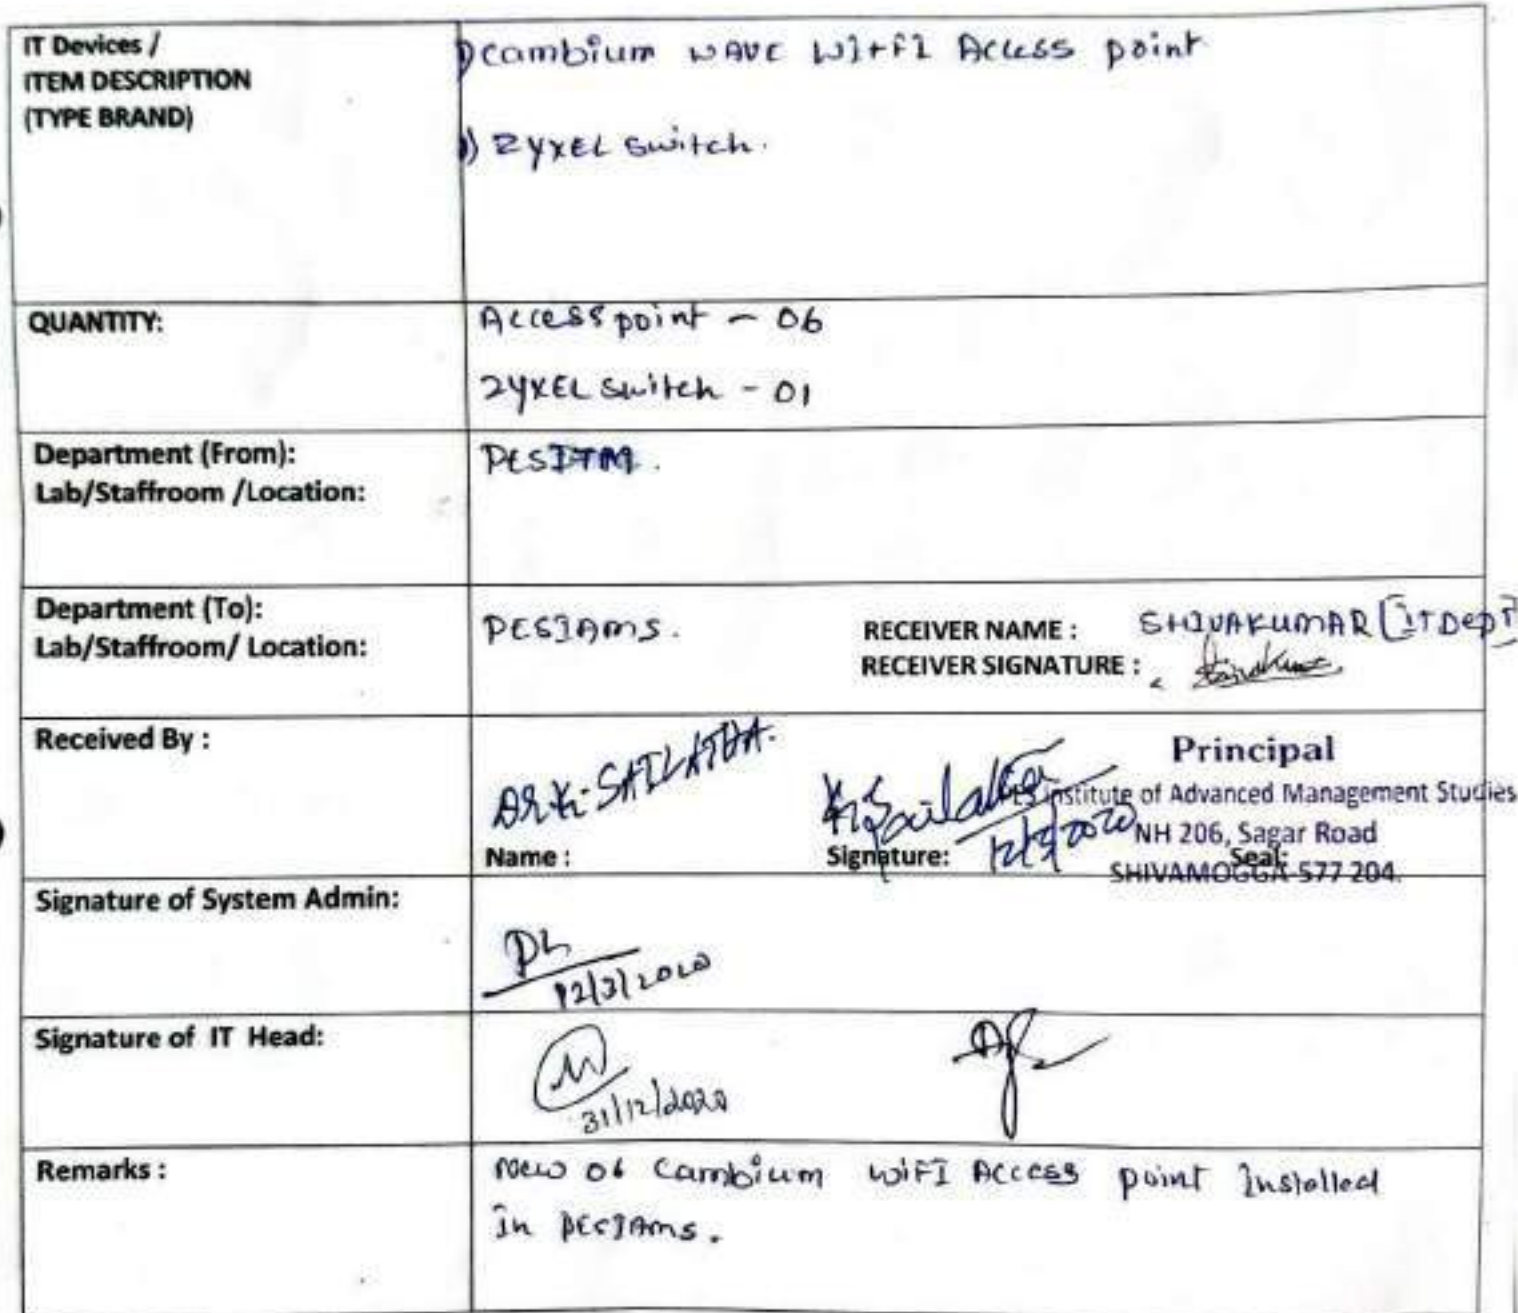 IT Devices /
ITEM DESCRIPTION
(TYPE BRAND)
) Cambium WAVE WIFI Access point
) ZYXEL switch.
QUANTITY:
Access point - 06
ZYXEL switch - 01
Department (From):
Lab/Staffroom /Location:
PESITM.
Department (To):
Lab/Staffroom/ Location:
PESIAMS.
RECEIVER NAME : SHIVAKUMAR [IT Dept]
RECEIVER SIGNATURE :
Received By :
Dr. K. SAILATHA.
K Sailatha
12/3/2020
Principal
ES Institute of Advanced Management Studies
NH 206, Sagar Road
SHIVAMOGGA-577 204.
Name :
Signature:
Seal:
Signature of System Admin:
12/3/2020
Signature of IT Head:
31/12/2020
Remarks :
New 06 Cambium WiFI Access point Installed
In PESIAMS.